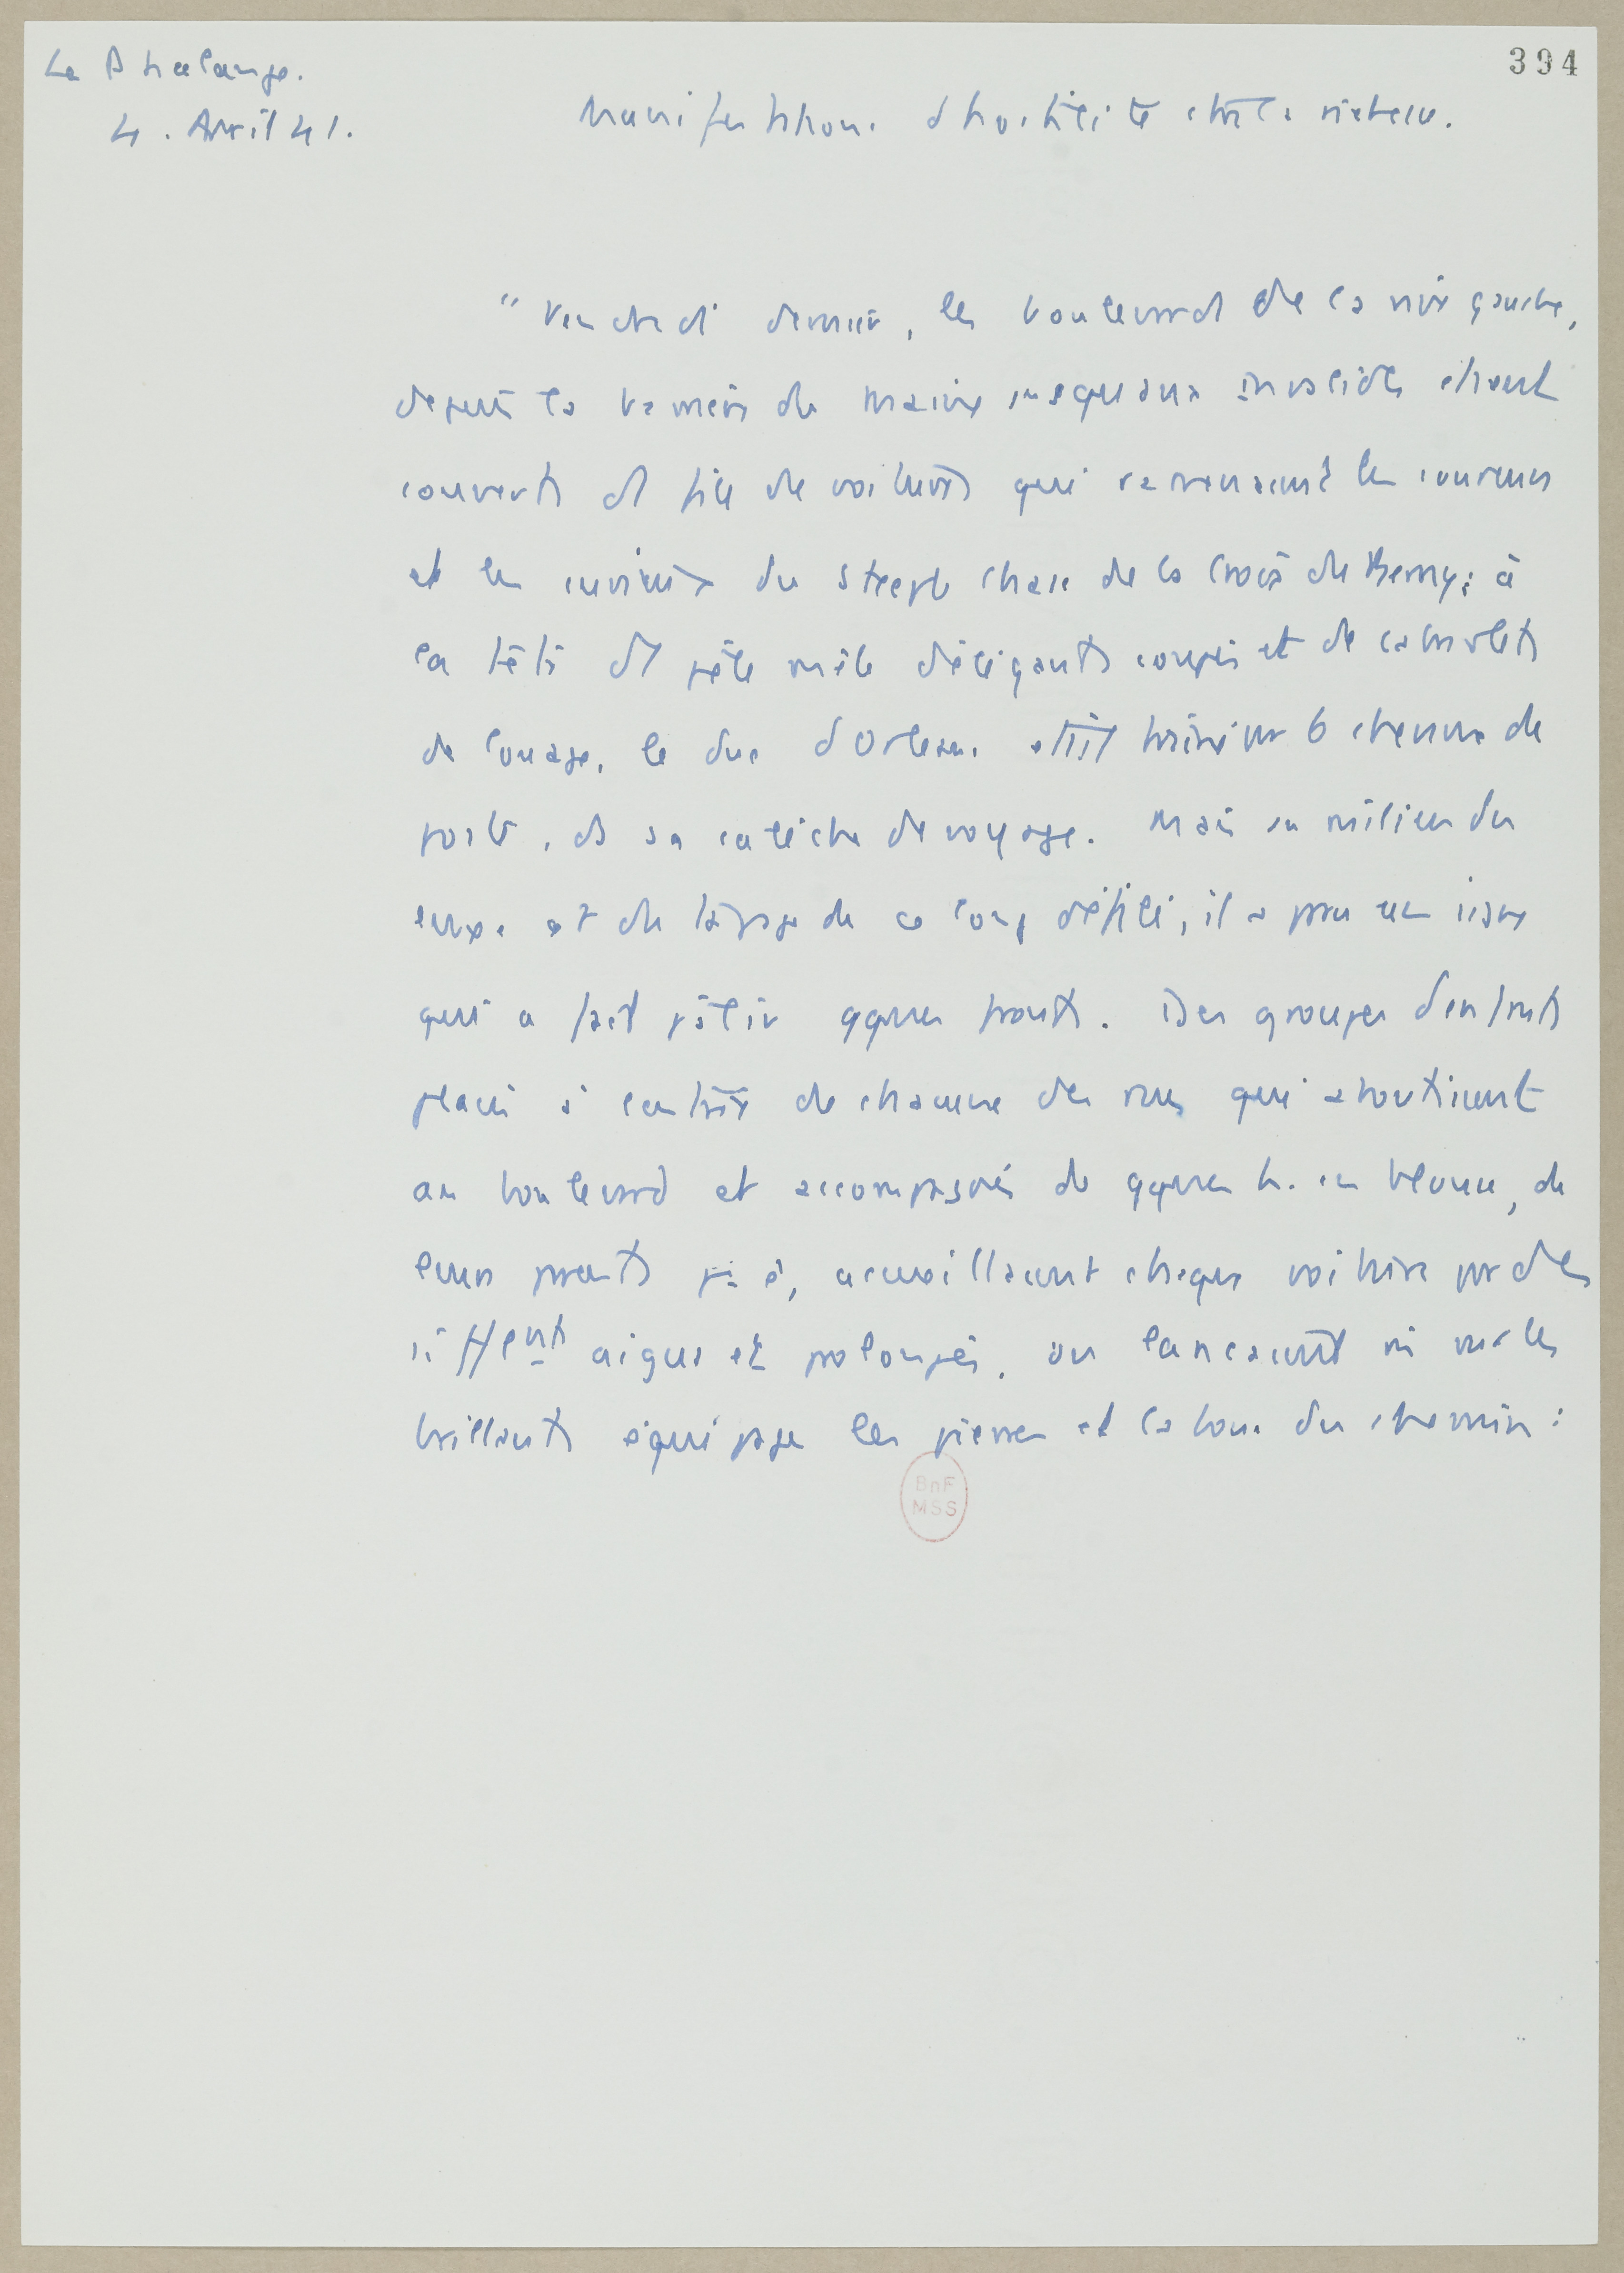 394
La Phalange.
4. Avril 41.
Manifestations d'hostilité ctre la richesse.
"Vendredi dernier, les boulevards de la rive gauche,
depuis la barrière du Maine jusqu'aux Invalides étaient
couverts de files de voitures qui ramenaient les coureurs
et les curieux du steeple chase de la Croix de Berny; à
la tête de pêle mêle d'élégants coupés et de cabriolets
de louage, le duc d'Orléans était traîné par 6 chevaux de
poste, ds sa calèche de voyage. Mais au milieu du
luxe et du tapage de ce long défilé, il a paru un
qui a fait pâlir qques fronts. Des groupes d'enfants
placés à l'entrée de chacune des rues qui aboutissent
au boulevard et accompagnés de qques h. en blouse, de
leurs parents, accueillaient chaque voiture par des
sifflents aigus et prolongés, ou lançaient sur les
brillants équipages les pierres et la boue du chemin:
BnF
MSS